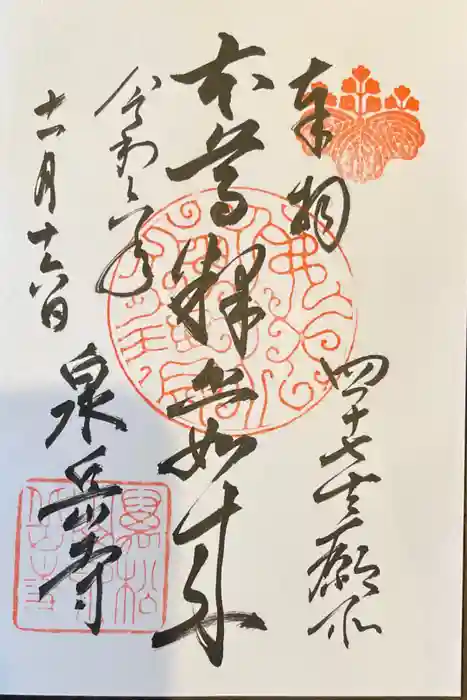 奉拝
四十七士廟所
本尊釋迦如来
令和年
十一月十六日
泉岳寺
萬松
山泉
岳寺